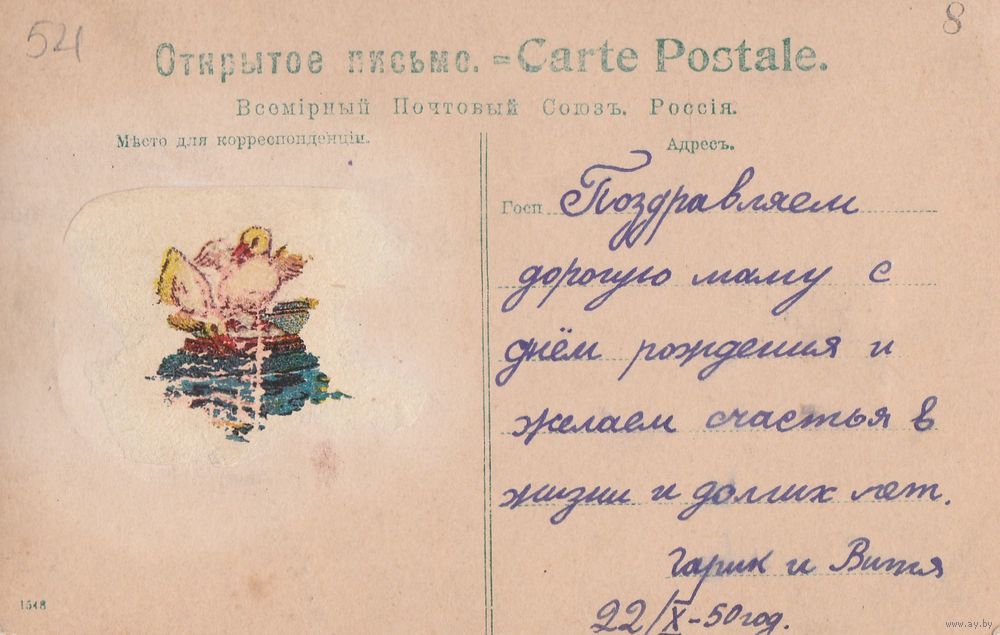 521
8
Открытое письмо. = Carte Postale.
Всемірный Почтовый Союзъ. Россія.
Мѣсто для корреспонденціи.
Адресъ.
Госп Поздравляем
дорогую маму с
днём рождения и
желаем счастья в
жизни и долгих лет.
Гарик и Витя
22/X-50 год.
1548
www.ay.by